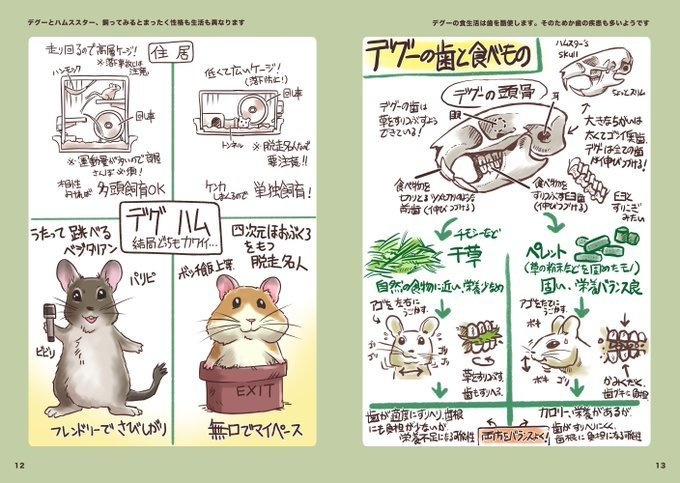 デグーとハムスター、飼ってみるとまったく性格も生活も異なります
住居
走り回るので高層ケージ!
※落下事故には注意。
ハンモック
回し車
※運動量が多いので部屋
さんぽ必須!
相性
よければ 多頭飼育OK
低くて広いケージ!
(落下防止!)
回し車
トンネル
※脱走名人なので
要注意!!
ケンカ
しまくるので 単独飼育!
デグ ハム
結局どっちもカワイイ…
うたって跳べる
ベジタリアン
パリピ
ビビリ
フレンドリーでさびしがり
四次元ほおぶくろ
をもつ
脱走名人
ボッチ飯上等
EXIT
無口でマイペース
12
デグーの食生活は歯を酷使します。そのためか歯の疾患も多いようです
デグーの歯と食べもの
ハムスター's
skull
ちょっとスリム
デグーの頭骨
眼
耳
デグーの歯は
草をすりつぶすよう
できている!
大きなちがいは
太くてゴツイ臼歯
デグーは全ての歯
が伸びつづける!
食べ物を
切りとる
前歯(伸びつづける)
食べ物を
すりつぶす臼歯
(伸びつづける)
臼と
すりこぎ
みたい
チモシーなど
干草
自然の食物に近い、栄養少なめ
ペレット
(草の粉末などを固めたモノ)
固い、栄養バランス良
アゴを左右に
うごかす
ゴリ
ゴリ
草をすりつぶす
歯もすりへる。
アゴをたてに
うごかす
ポキ
ポキ
ゴリ
かみくだく。
歯ブキに負担
歯が適度にすりへり、歯根
にも負担が少ないが
栄養不足になる可能性
両方をバランスよく!
カロリー、栄養があるが
歯がすりへりにくく、
歯根に負担になる可能性
13